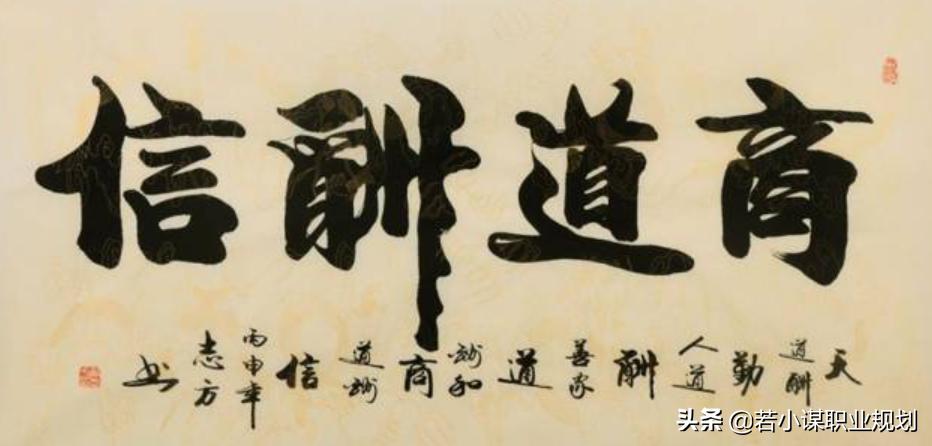 商道酬信
天道酬勤人道酬善家道酬和商道酬信丙申年志方书
头条 @若小谋职业规划